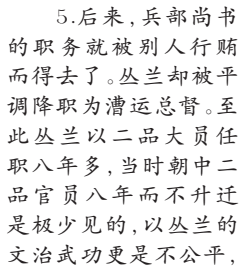 5.后来,兵部尚书
的职务就被别人行贿
而得去了。丛兰却被平
调降职为漕运总督。至
此丛兰以二品大员任
职八年多,当时朝中二
品官员八年而不升迁
是极少见的,以丛兰的
文治武功更是不公平,